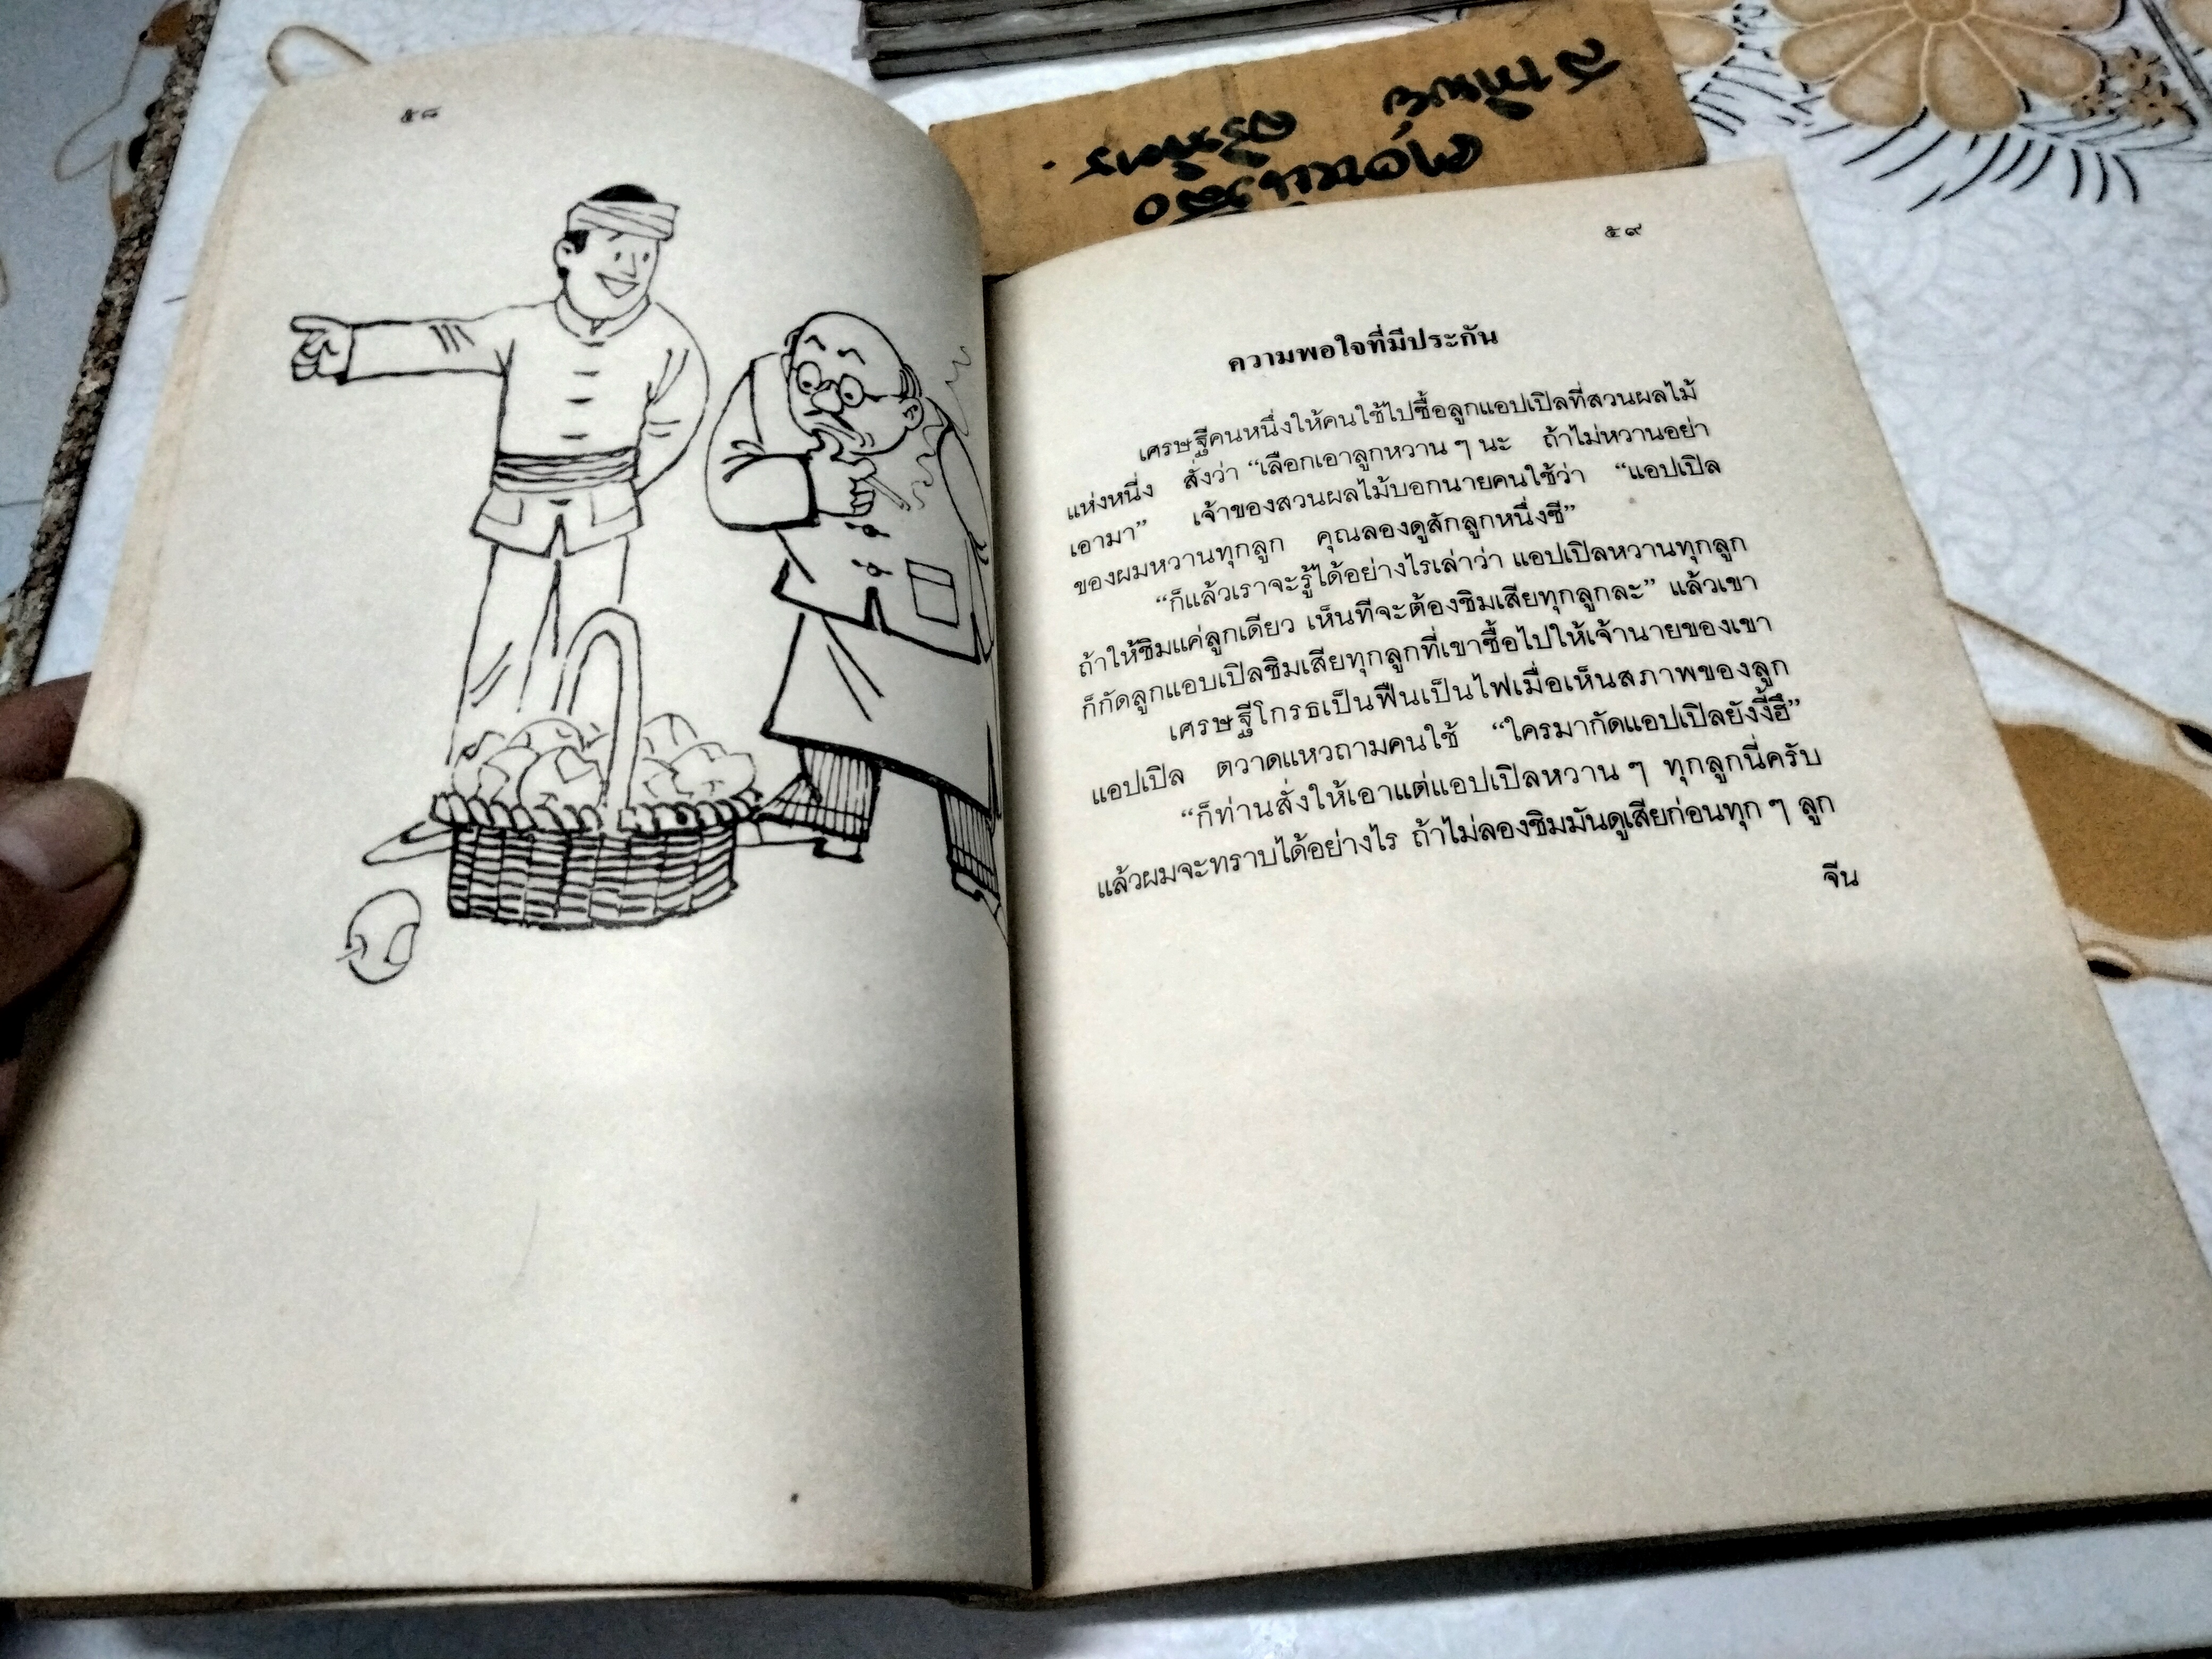 ๕๘
๕๙
ความพอใจที่มีประกัน
เศรษฐีคนหนึ่งให้คนใช้ไปซื้อลูกแอปเปิลที่สวนผลไม้
แห่งหนึ่ง สั่งว่า “เลือกเอาลูกหวาน ๆ นะ ถ้าไม่หวานอย่า
เอามา” เจ้าของสวนผลไม้บอกนายคนใช้ว่า “แอปเปิล
ของผมหวานทุกลูก คุณลองดูสักลูกหนึ่งซี”
“ก็แล้วเราจะรู้ได้อย่างไรเล่าว่า แอปเปิลหวานทุกลูก
ถ้าให้ชิมแค่ลูกเดียว เห็นทีจะต้องชิมเสียทุกลูกละ” แล้วเขา
ก็กัดลูกแอบเปิลชิมเสียทุกลูกที่เขาซื้อไปให้เจ้านายของเขา
เศรษฐีโกรธเป็นฟืนเป็นไฟเมื่อเห็นสภาพของลูก
แอปเปิล ตวาดแหวถามคนใช้ “ใครมากัดแอปเปิลยังงี้ฮึ”
“ก็ท่านสั่งให้เอาแต่แอปเปิลหวาน ๆ ทุกลูกนี่ครับ
แล้วผมจะทราบได้อย่างไร ถ้าไม่ลองชิมมันดูเสียก่อนทุก ๆ ลูก
จีน